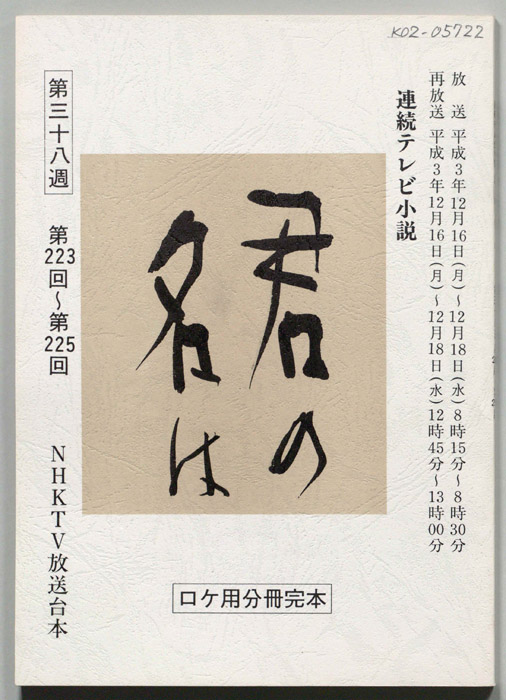 K02-05722
放　送　平成3年12月16日(月)～12月18日(水)8時15分～8時30分
再放送　平成3年12月16日(月)～12月18日(水)12時45分～13時00分
連続テレビ小説
君の
名は
第三十八週
第223回～第225回
NHKTV放送台本
ロケ用分冊完本